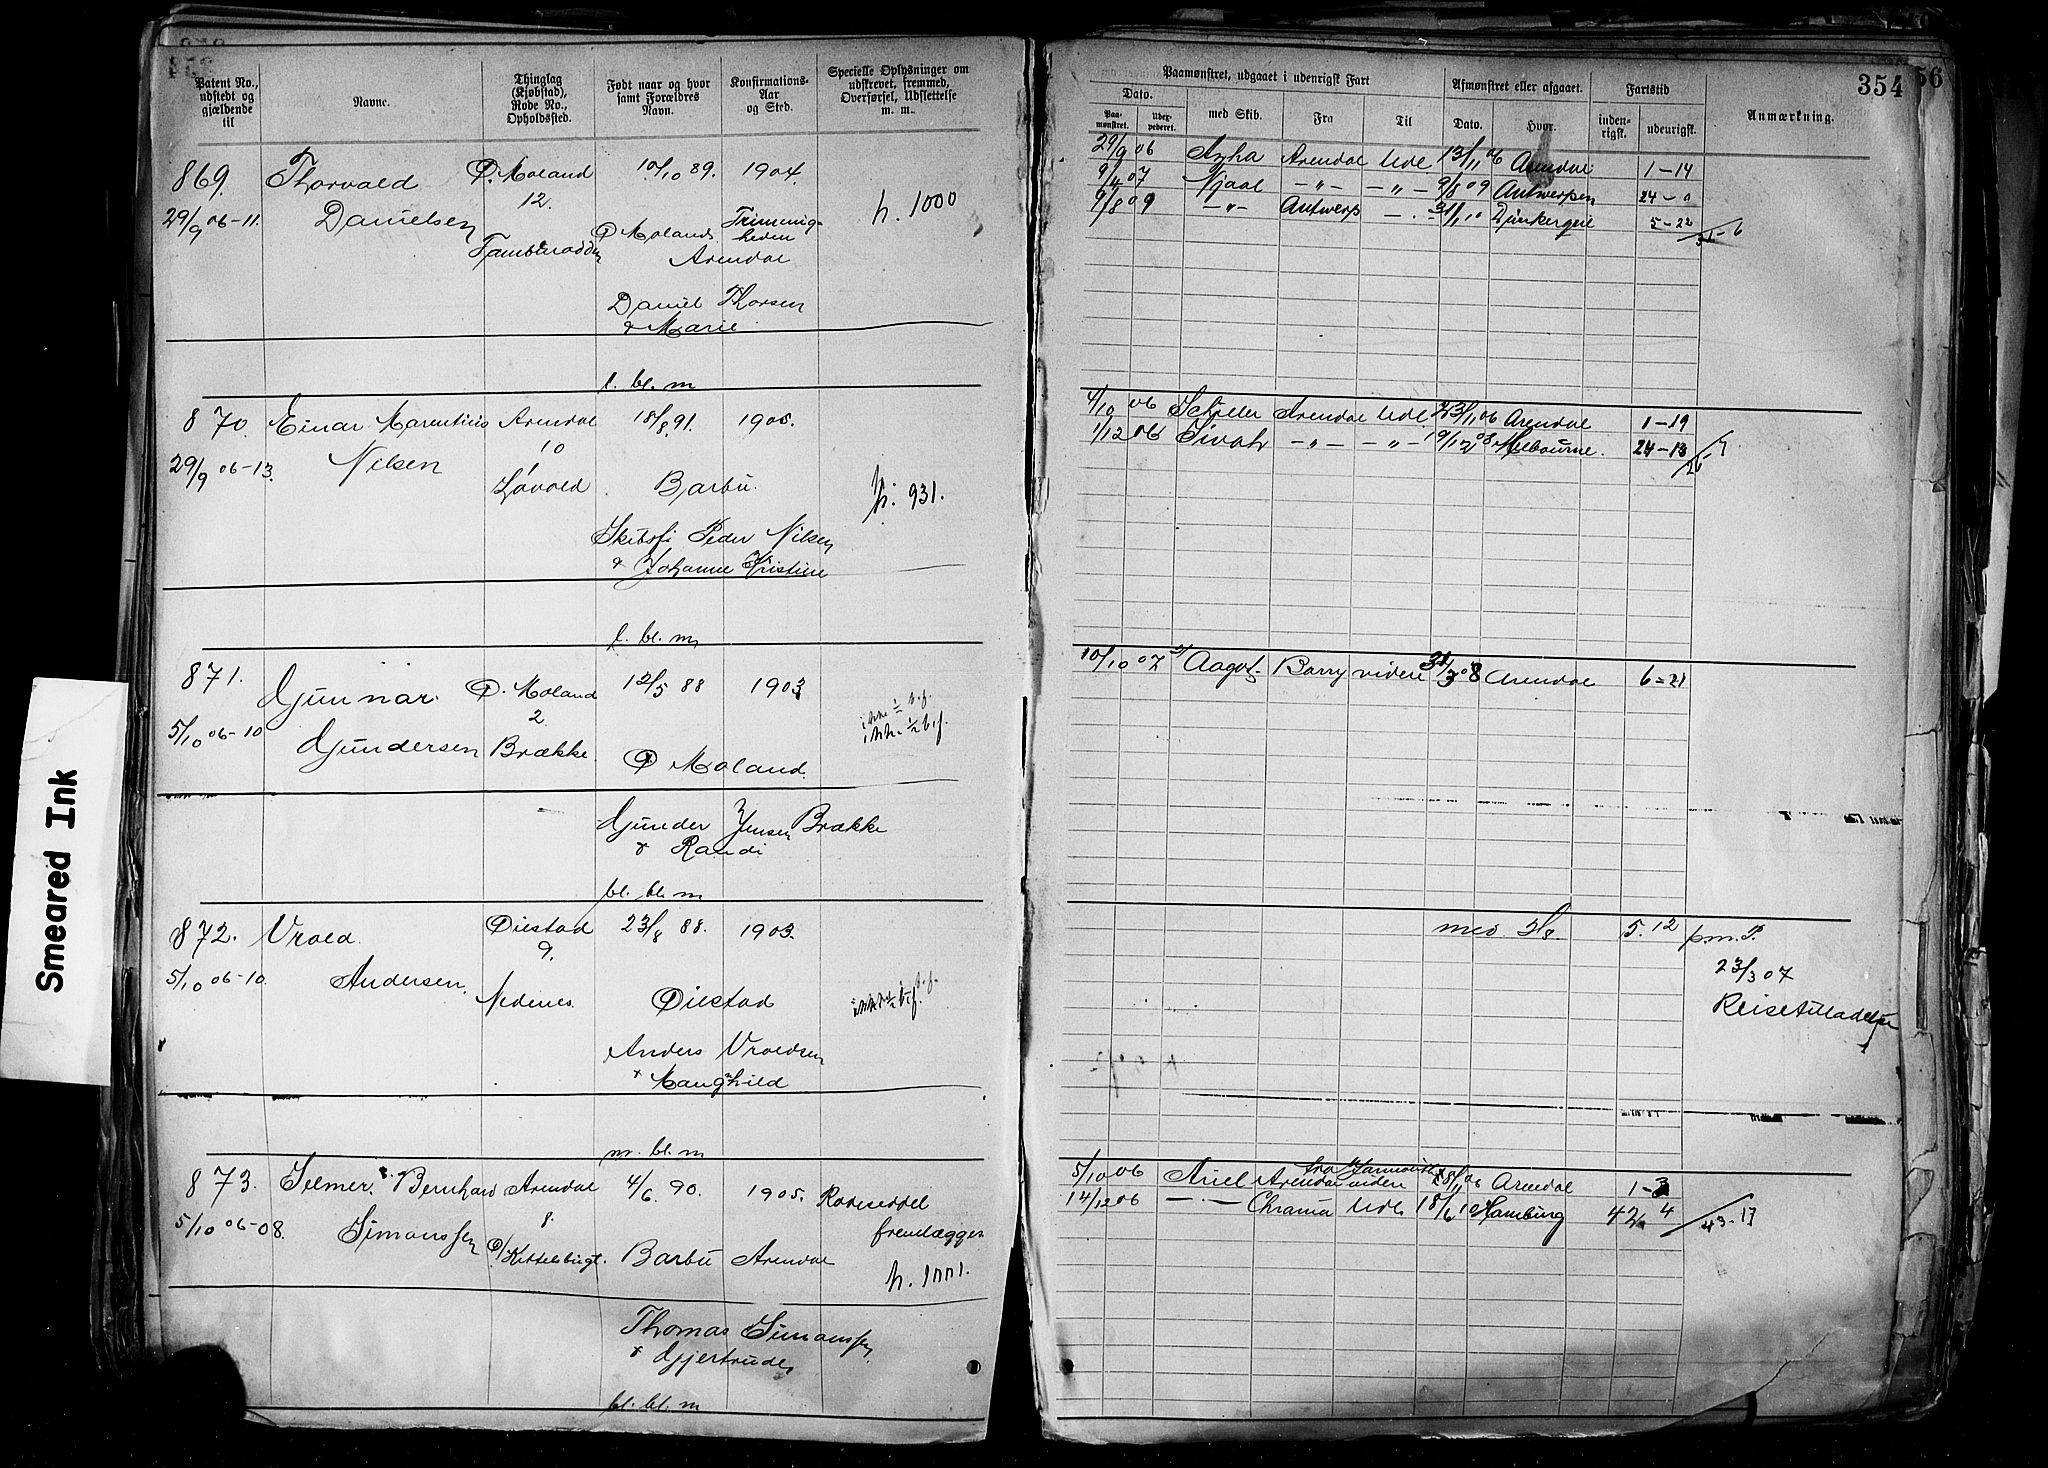 354
56
Patent No., udstedt og gjældende til
Navne.
Thinglag (Kjøbstad), Rode No., Opholdsted.
Født naar og hvor samt Forældres Navn.
Konfirmations-Aar og Sted.
Specielle Oplysninger om udskrevet, fremmed, Overførsel, Udslettelse m. m.
Paamønstret, udgaaet i udenrigsk Fart
Dato.
Paa-mønstret.
med Skib.
Fra
Til
Afmønstret eller afgaaet.
Dato.
Hvor.
Fartstid
inden-rigsk.
udenrigsk.
Anmærkning.
869. Thorvald Ø. Moland 10/10 89. 1904.
12.
29/9 06-11. Danielsen
h. 1000
Ø Moland Arendal
Daniel Thorsen
& Marie
l. bl. m
29/9 06 Arendal Udl 13/11 06 Arendal 1-14
9/4 07 Njaal -"- -"- 9/8 09 Antwerpen 24-0
9/8 09 -"- Antwerp 31/1 10 5-22
870. Einar Marentius Arendal 18/8 91. 1905.
10
29/9 06-13. Nilsen Løvold Barbu. h. 931.
Peder Nilsen
& Johanne Kristine
l. bl. m
4/10 06 Arendal Udl 23/11 06 Arendal 1-19
1/12 06 -"- -"- 19/12 08 Melbourne. 24-18
871. Gunnar Ø. Moland 12/5 88 1903
2
5/10 06-10 Gundersen Brække Ø Moland.
ikke 1/2 b.f.
Gunder Jensen Brække
& Randi
bl. bl. m
10/10 07 Aagot Barry videre 31/3 08 Arendal 6-21
872. Vrold Øiestad 23/8 88. 1903.
9.
5/10 06-10. Andersen. Nedenes Øiestad
ikke 1/2 b.f.
Anders Vroldsen
& Maughild
m. bl. m
5.12 pm. P.
23/3 07
Reisetilladelse
873. Selmer Bernhard Arendal 4/6 90. 1905. Rodeseddel
8. fremlægges
5/10 06-08. Simonssen Kittelsbugt. Barbu Arendal
h. 1001.
Thomas Simonssen
& Gjertrude
bl. bl. m
5/10 06 Ariel Arendal videre Arendal 1-3
14/12 06 -"- Chrania Udl 18/6 10 Hamburg 42 4
43-17
Smeared Ink